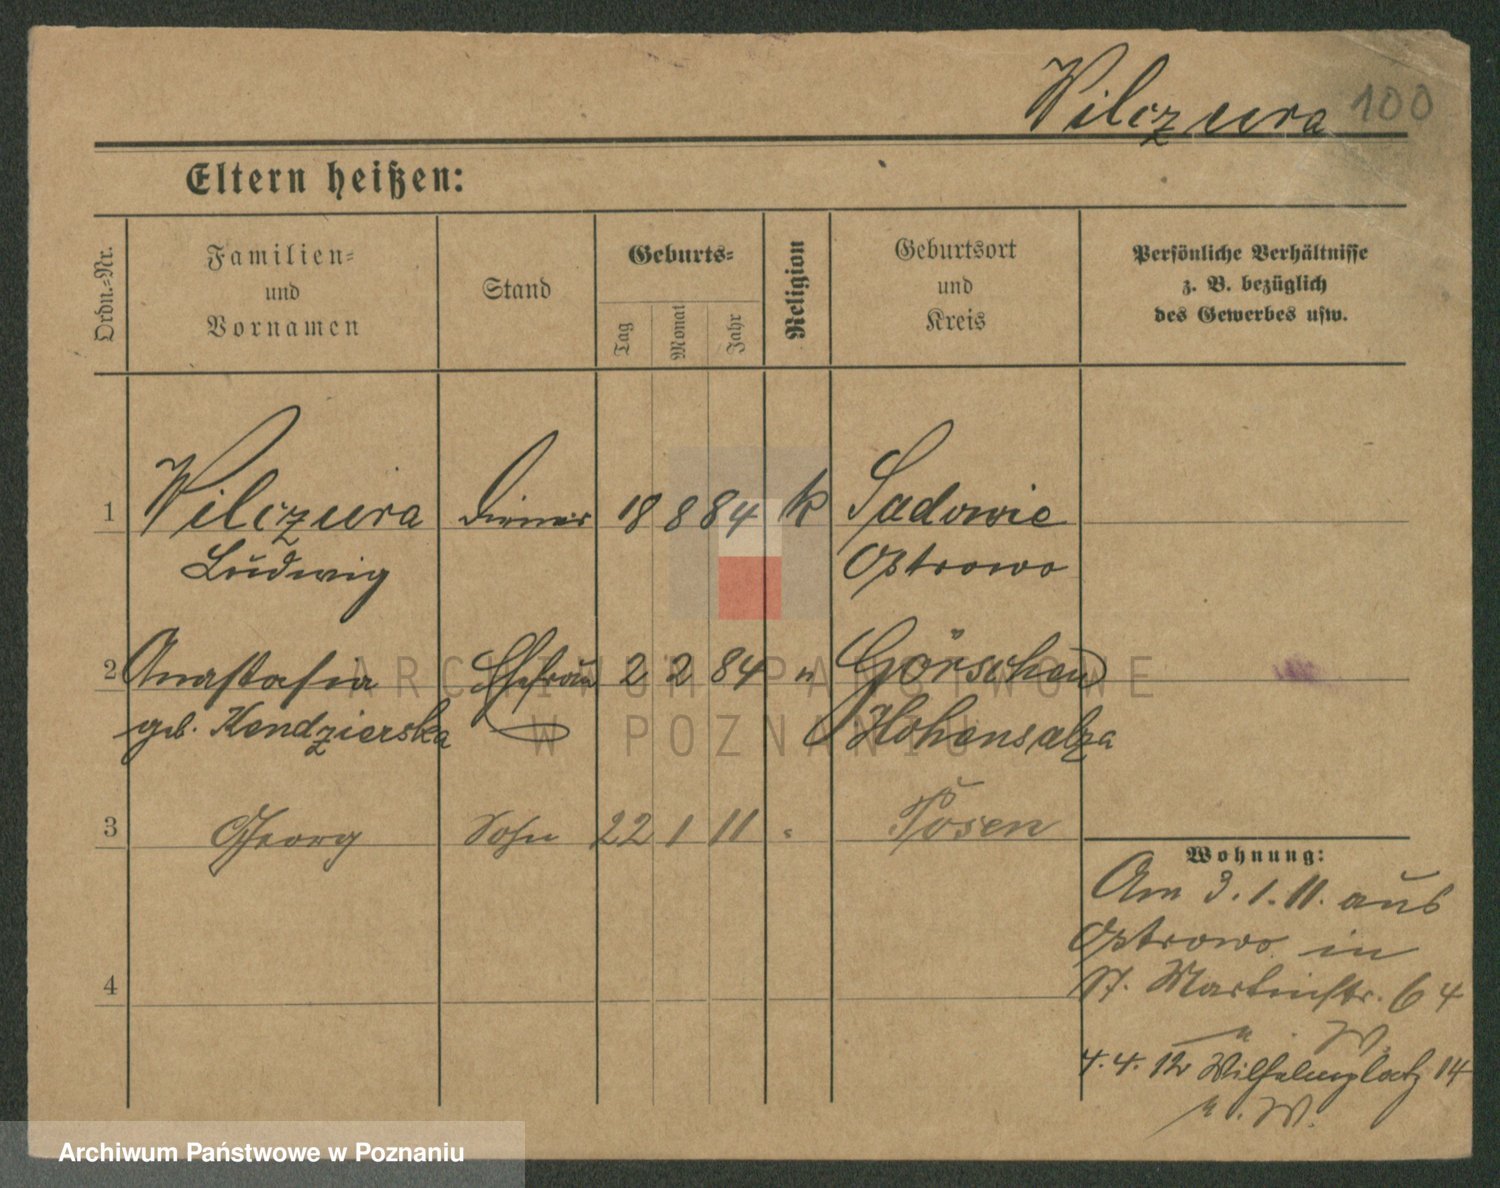 Wilczura 100
Eltern heißen:
Ordn.-Nr.
Familien-
und
Vornamen
Stand
Geburts-
Tag
Monat
Jahr
Religion
Geburtsort
und
Kreis
Persönliche Verhältnisse
z. B. bezüglich
des Gewerbes usw.
1 Wilczura Diener 18 8 84 k Sadowie
Ludwig Ostrowo
2 Anastasia Ehefrau 2 2 84 " Görschen
geb. Kendzierska Hohensalza
3 Georg Sohn 22 1 11 " Posen
Wohnung:
Am 3.1.11. aus
Ostrowo in
St. Martinstr. 64
4
4.4.12 Wilhelmplatz 14
ARCHIWUM PAŃSTWOWE
W POZNANIU
Archiwum Państwowe w Poznaniu